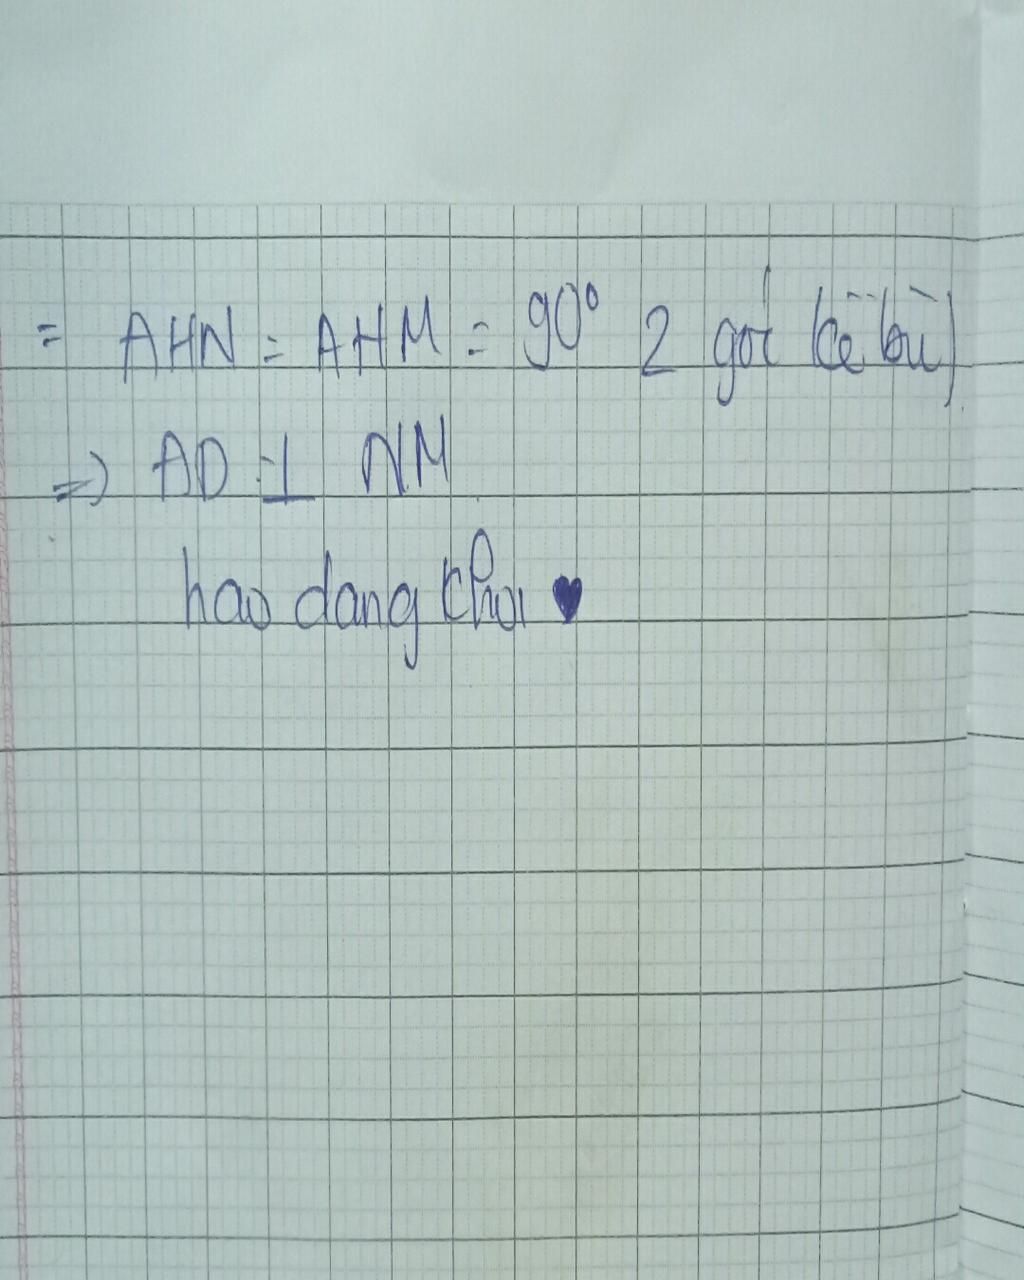 = AHN = AHM = 90° 2 góc kề bù)
=> AD ⊥ NM
hao dang choi ♥